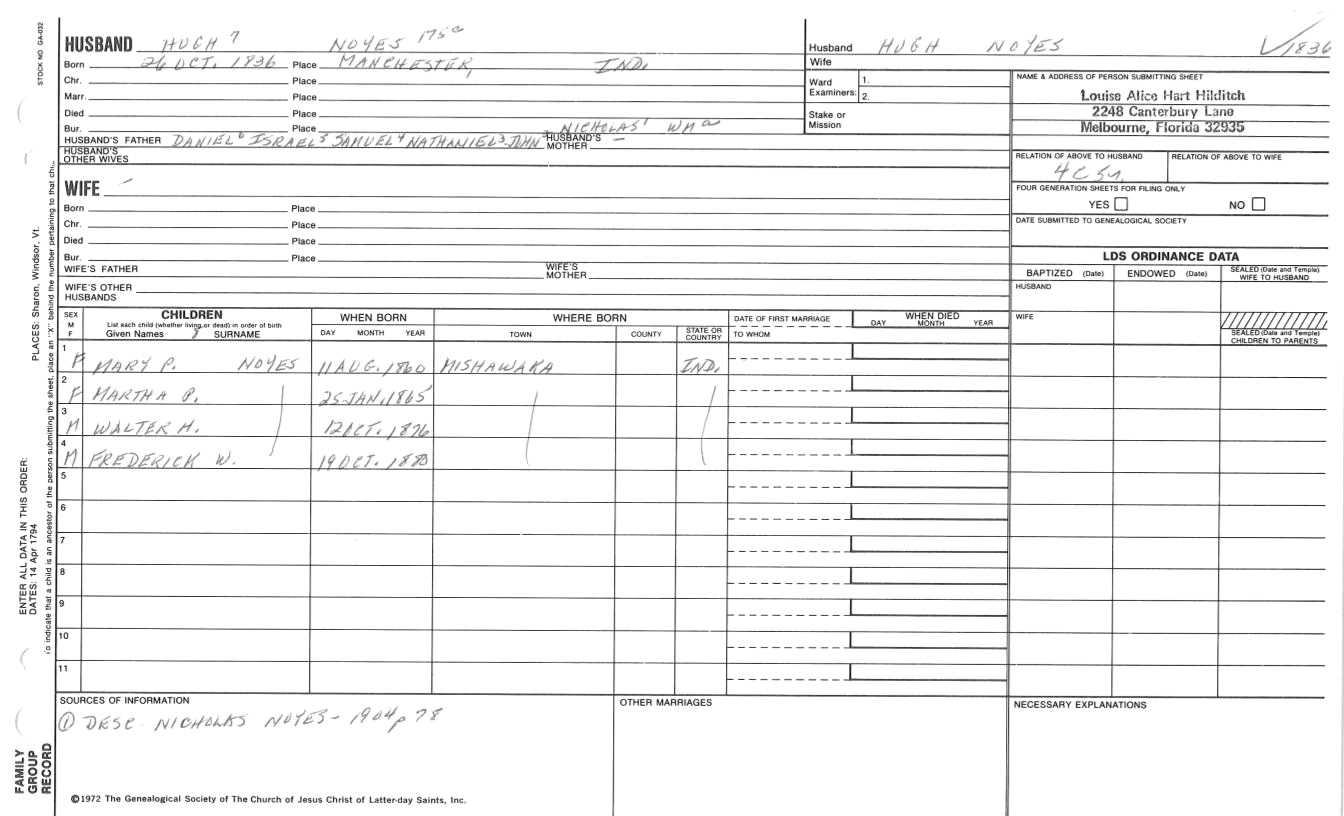 STOCK NO. GA-032
HUSBAND HUGH 7 NOYES 175a
Husband HUGH NOYES √1836
Born 26 OCT. 1836 Place MANCHESTER, IND.
Wife
Chr. Place
Ward Examiners: 1. 2.
Marr. Place
Died Place
Stake or Mission
Bur. Place
NICHOLAS¹ WMᵃ
HUSBAND'S FATHER DANIEL⁶ ISRAEL⁵ SAMUEL⁴ NATHANIEL³ JOHN² HUSBAND'S MOTHER –
HUSBAND'S OTHER WIVES
NAME & ADDRESS OF PERSON SUBMITTING SHEET
Louise Alice Hart Hilditch
2248 Canterbury Lane
Melbourne, Florida 32935
RELATION OF ABOVE TO HUSBAND RELATION OF ABOVE TO WIFE
FOUR GENERATION SHEETS FOR FILING ONLY
YES ☐ NO ☐
DATE SUBMITTED TO GENEALOGICAL SOCIETY
WIFE –
Born Place
Chr. Place
Died Place
Bur. Place
WIFE'S FATHER WIFE'S MOTHER
WIFE'S OTHER HUSBANDS
LDS ORDINANCE DATA
BAPTIZED (Date) ENDOWED (Date) SEALED (Date and Temple) WIFE TO HUSBAND
HUSBAND
WIFE
SEALED (Date and Temple) CHILDREN TO PARENTS
SEX M F CHILDREN WHEN BORN WHERE BORN DATE OF FIRST MARRIAGE WHEN DIED
List each child (whether living or dead) in order of birth
Given Names 8 SURNAME DAY MONTH YEAR TOWN COUNTY STATE OR COUNTRY TO WHOM DAY MONTH YEAR
1 F MARY P. NOYES 11 AUG. 1860 MISHAWAKA IND.
2 F MARTHA P. 25 JAN. 1865
3 M WALTER H. 12 OCT. 1876
4 M FREDERICK W. 19 OCT. 1880
5
6
7
8
9
10
11
SOURCES OF INFORMATION OTHER MARRIAGES NECESSARY EXPLANATIONS
① DESC. NICHOLAS NOYES – 1904 p 78
©1972 The Genealogical Society of The Church of Jesus Christ of Latter-day Saints, Inc.
PLACES: Sharon, Windsor, Vt.
ENTER ALL DATA IN THIS ORDER:
DATES: 14 Apr 1794
To indicate that a child is an ancestor of the person submitting the sheet, place an "X" behind the number pertaining to that
FAMILY
GROUP
RECORD